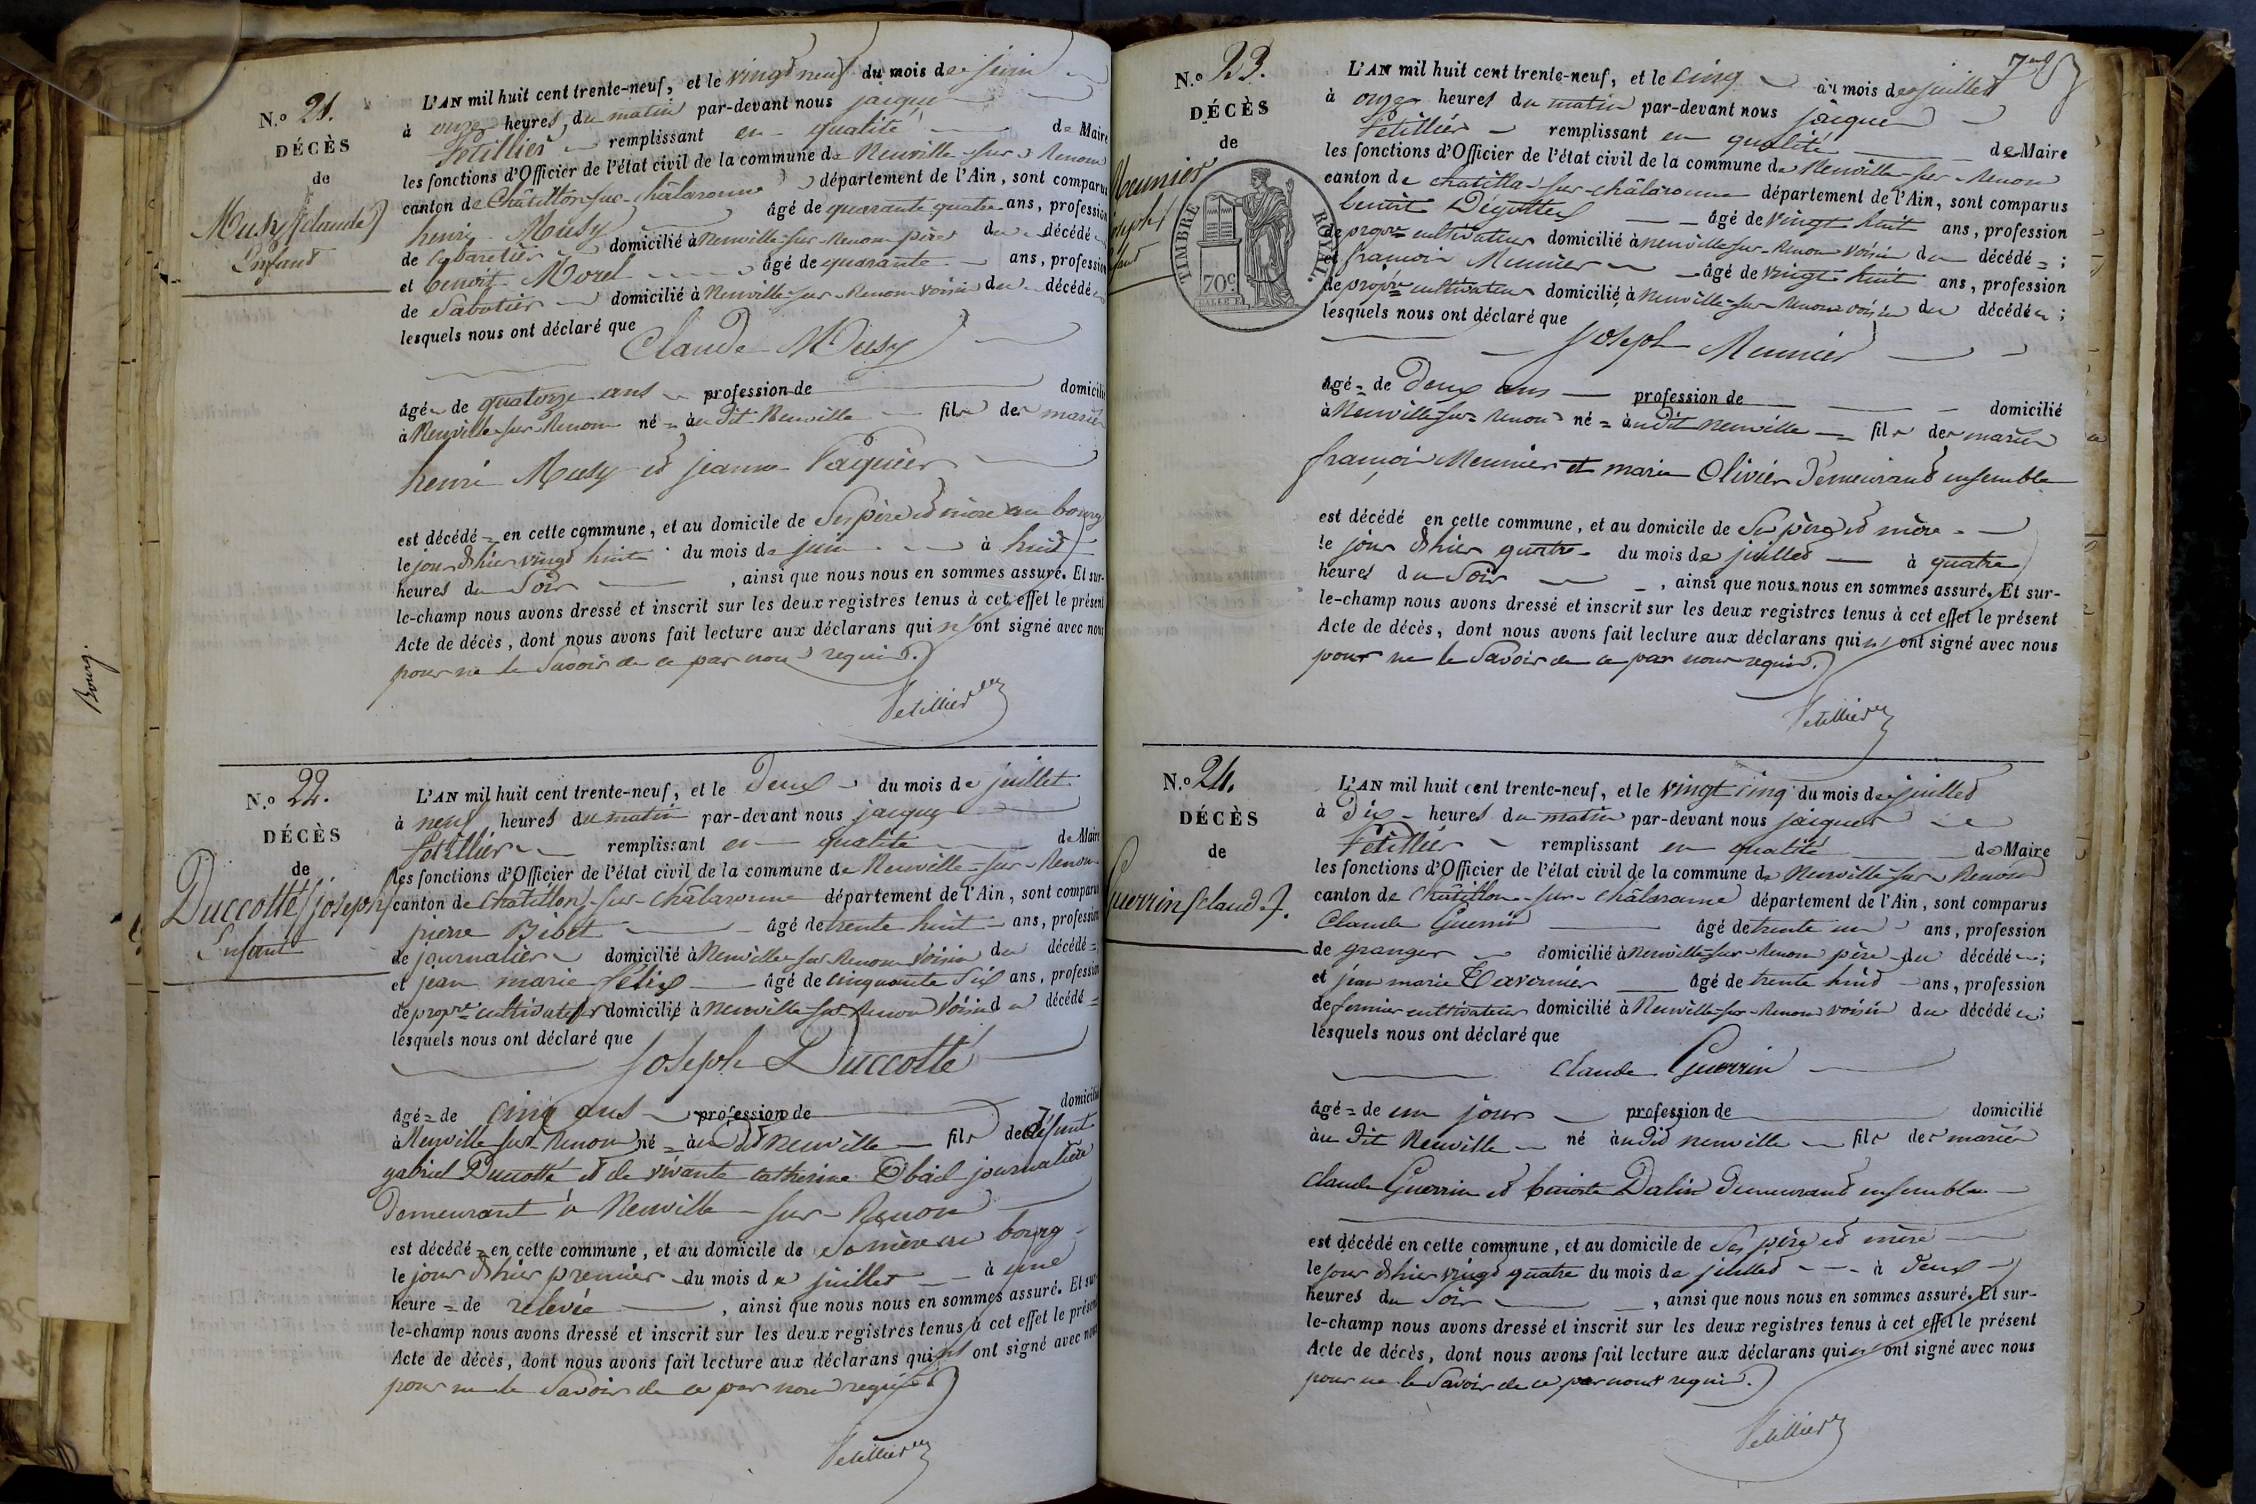 Bourg.
N.o 21.
DÉCÈS
de
Musy (claude)
Enfant
L'AN mil huit cent trente-neuf, et le vingt neuf du mois de juin
à onze heures, du matin par-devant nous jacques
Petillier remplissant en qualité de Maire
les fonctions d'Officier de l'état civil de la commune de Neuville-sur-Renom
canton de Châtillon-sur-châlaronne département de l'Ain, sont comparus
henri Musy âgé de quarante quatre ans, profession
de Cabaretier domicilié à Neuville-sur-Renom père du décédé
et benoit Morel âgé de quarante ans, profession
de Sabotier domicilié à Neuville-sur-Renom voisin du décédé
lesquels nous ont déclaré que
Claude Musy
âgé de quatorze ans profession de domicilié
à Neuville-sur-Renom né = au dit Neuville fils des mariés
henri Musy et jeanne
est décédé = en cette commune, et au domicile de Ses père et mère au bourg
le jour d'hier vingt huit du mois de juin à huit
heures du Soir , ainsi que nous nous en sommes assuré. Et sur-
le-champ nous avons dressé et inscrit sur les deux registres tenus à cet effet le présent
Acte de décès, dont nous avons fait lecture aux déclarans qui n'ont signé avec nous
pour ne le Savoir de ce par nous requis.
Petillier
N.o 22.
DÉCÈS
de
Duccotté (joseph)
Enfant
L'AN mil huit cent trente-neuf, et le Deux du mois de juillet
à neuf heures du matin par-devant nous jacques
Petillier remplissant en qualité de Maire
les fonctions d'Officier de l'état civil de la commune de Neuville-sur-Renom
canton de Châtillon-sur-châlaronne département de l'Ain, sont comparus
pierre Bibet âgé de trente huit ans, profession
de journalier domicilié à Neuville sur Renom voisin du décédé =
et jean marie Félix âgé de cinquante Six ans, profession
de propre cultivateur domicilié à Neuville-sur-Renom voisin du décédé =
lesquels nous ont déclaré que
Joseph Duccotté
âgé = de cinq ans profession de domicilié
à Neuville sur Renom né = au dit neuville fils de défunt
gabriel Duccotté et de vivante catherine journalière
Demeurant à Neuville-sur-Renom
est décédé = en cette commune, et au domicile de Sa mère au bourg
le jour d'hier premier du mois de juillet à une
heure = de relevée , ainsi que nous nous en sommes assuré. Et sur-
le-champ nous avons dressé et inscrit sur les deux registres tenus à cet effet le présent
Acte de décès, dont nous avons fait lecture aux déclarans qui n' ont signé avec nous
pour ne le Savoir de ce par nous requis.
Petillier
N.o 23.
DÉCÈS
de
Meunier
joseph
TIMBRE ROYAL.
70c
L'AN mil huit cent trente-neuf, et le cinq du mois de juillet
à onze heures du matin par-devant nous jacques
Petillier remplissant en qualité de Maire
les fonctions d'Officier de l'état civil de la commune de Neuville-sur-Renom
canton de chatillon-sur-châlaronne département de l'Ain, sont comparus
benoit âgé de vingt huit ans, profession
de propre cultivateur domicilié à neuville-sur-Renom voisin du décédé = ;
et françois Meunier âgé de vingt huit ans, profession
de propre cultivateur domicilié à Neuville-sur-Renom voisin du décédé ;
lesquels nous ont déclaré que
Joseph Meunier
âgé = de Deux ans profession de domicilié
à Neuville-sur-Renom né = au dit neuville fils des mariés
françois Meunier et marie Olivier Demeurant ensemble
est décédé en cette commune, et au domicile de Ses père et mère
le jour d'hier quatre du mois de juillet à quatre
heures du Soir , ainsi que nous nous en sommes assuré. Et sur-
le-champ nous avons dressé et inscrit sur les deux registres tenus à cet effet le présent
Acte de décès, dont nous avons fait lecture aux déclarans qui n' ont signé avec nous
pour ne le Savoir de ce par nous requis.
Petillier
N.o 24.
DÉCÈS
de
Guerrin (claude).
L'AN mil huit cent trente-neuf, et le vingt cinq du mois de juillet
à Dix heures du matin par-devant nous jacques
Petillier remplissant en qualité de Maire
les fonctions d'Officier de l'état civil de la commune de Neuville-sur-Renom
canton de Châtillon-sur-châlaronne département de l'Ain, sont comparus
Claude Guerrin âgé de trente un ans, profession
de granger domicilié à Neuville-sur-Renom père du décédé ;
et jean marie Tavernier âgé de trente huit ans, profession
de fermier cultivateur domicilié à Neuville-sur-Renom voisin du décédé ;
lesquels nous ont déclaré que
Claude Guerrin
âgé = de un jour profession de domicilié
au dit Neuville né au dit neuville fils des mariés
Claude Guerrin et benoite Dalin Demeurant ensemble
est décédé en cette commune, et au domicile de Ses père et mère
le jour d'hier vingt quatre du mois de juillet à Deux
heures du Soir , ainsi que nous nous en sommes assuré. Et sur-
le-champ nous avons dressé et inscrit sur les deux registres tenus à cet effet le présent
Acte de décès, dont nous avons fait lecture aux déclarans qui n' ont signé avec nous
pour ne le Savoir de ce par nous requis.
Petillier